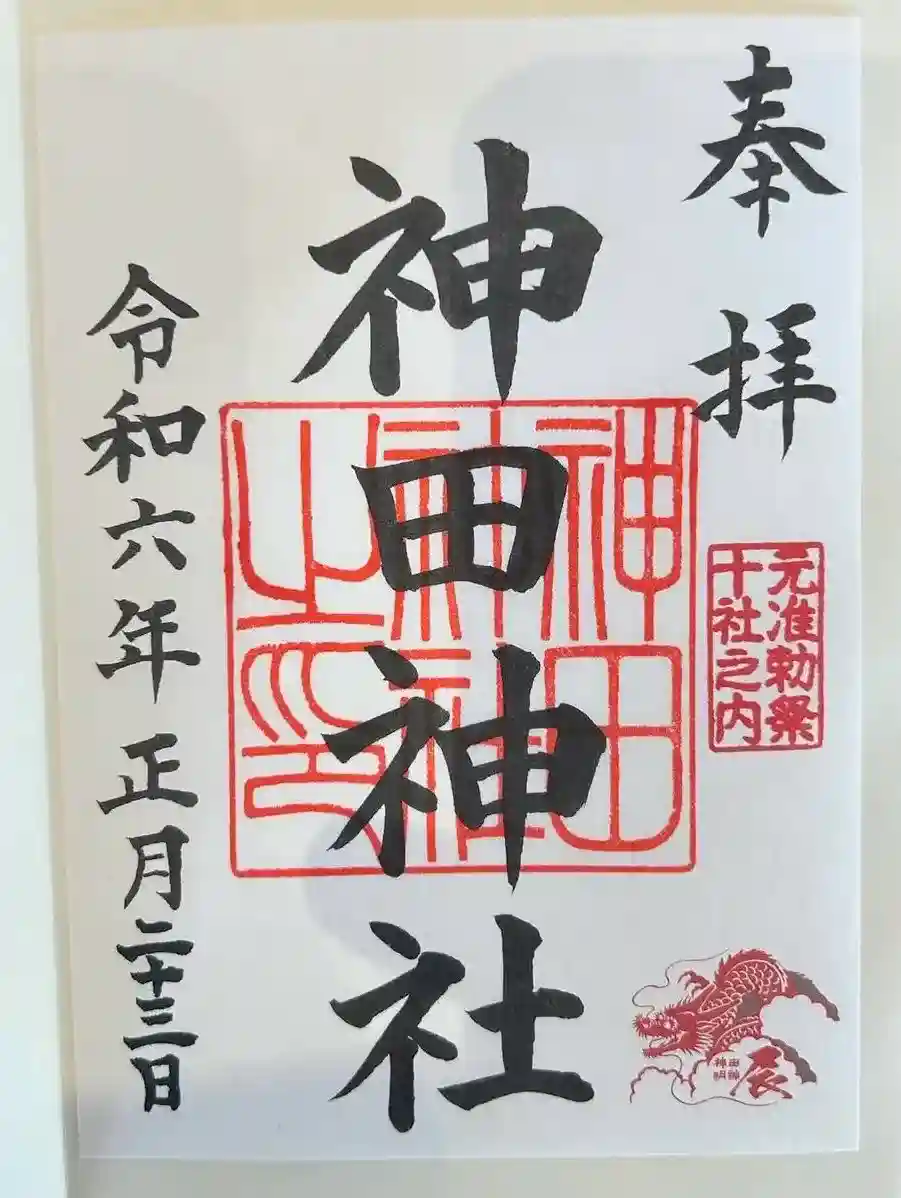 奉拝
元准勅祭
十社之内
神田神社
神田
神社
之印
令和六年正月二十三日
神田
明神
辰